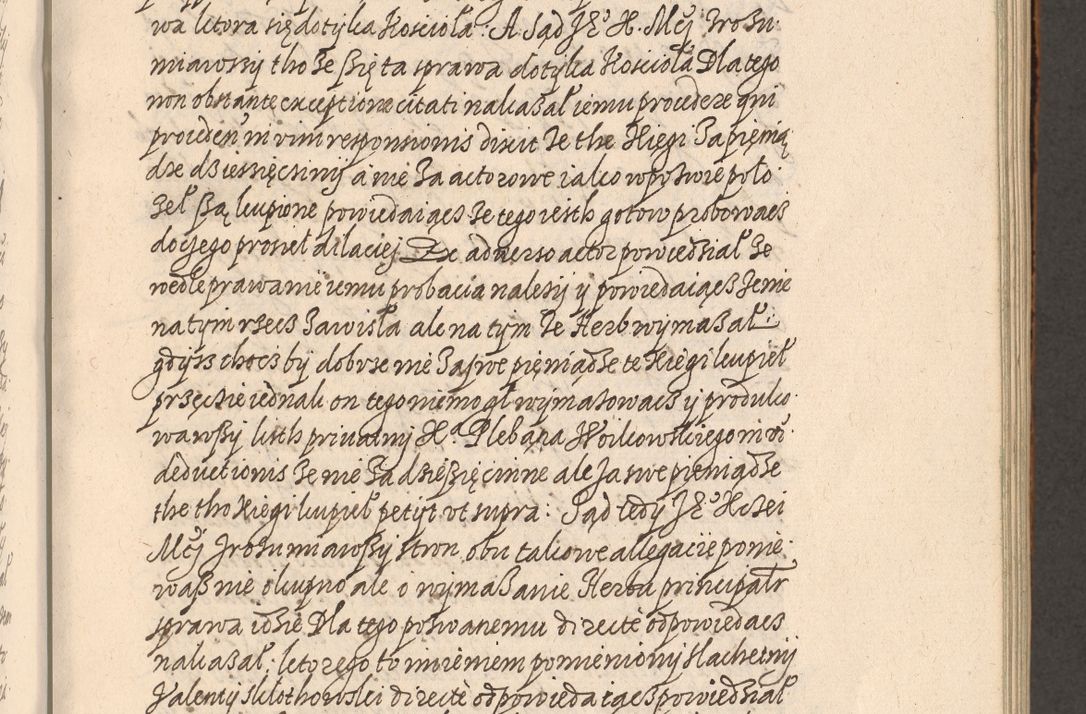 wa ktora się dotyka Kosciola. A Sąd Je° X. Mći Irozu-
miawszy tho że się ta sprawa dotyka Koscioła Dla tego
non obstante exceptione citati nakazał iemu procedere qui
proceden' in vim responsionis dixit że the Xięgi Za pienią
dze dziesięcinnÿ a nie Za actorowe iako w pozwie poło-
zeł są kupione powiedaiącz że tego iesth gotow probowacz
do czego prosieł dilaciej Ex adverso actor powiedział że
wedle prawa nie iemu probacia nalezÿ ÿ powiedaiącz że nie
na tÿm rzecz Zawisła ale na tÿm że Herb wÿmazał
gdÿsz chocz bÿ dobrze nie Za swe pieniądze te Xięgi kupieł
przecżie iednak on tego nie mogł wÿmazowacz ÿ produko-
wawszÿ listh privatnÿ Xa Plebana Woikowskiego in vim
deductionis że nie Za dziesięcinne ale Za swe pieniądze
the tho Xięgi kupieł petÿt ut supra: Sąd tedÿ Je° X Zei
Mći Jrozumiawszÿ stron obu takowe allegacie ponie-
wasz nie o kupno ale o wÿmazanie Herbu principalr
sprawa idzie Dla tego pozwanemu directè odpowiedacz
nakazał: ktorego to imieniem pomienionÿ slachetnÿ
Valentÿ Skłothowski directè odpowiedaiącz powiedział